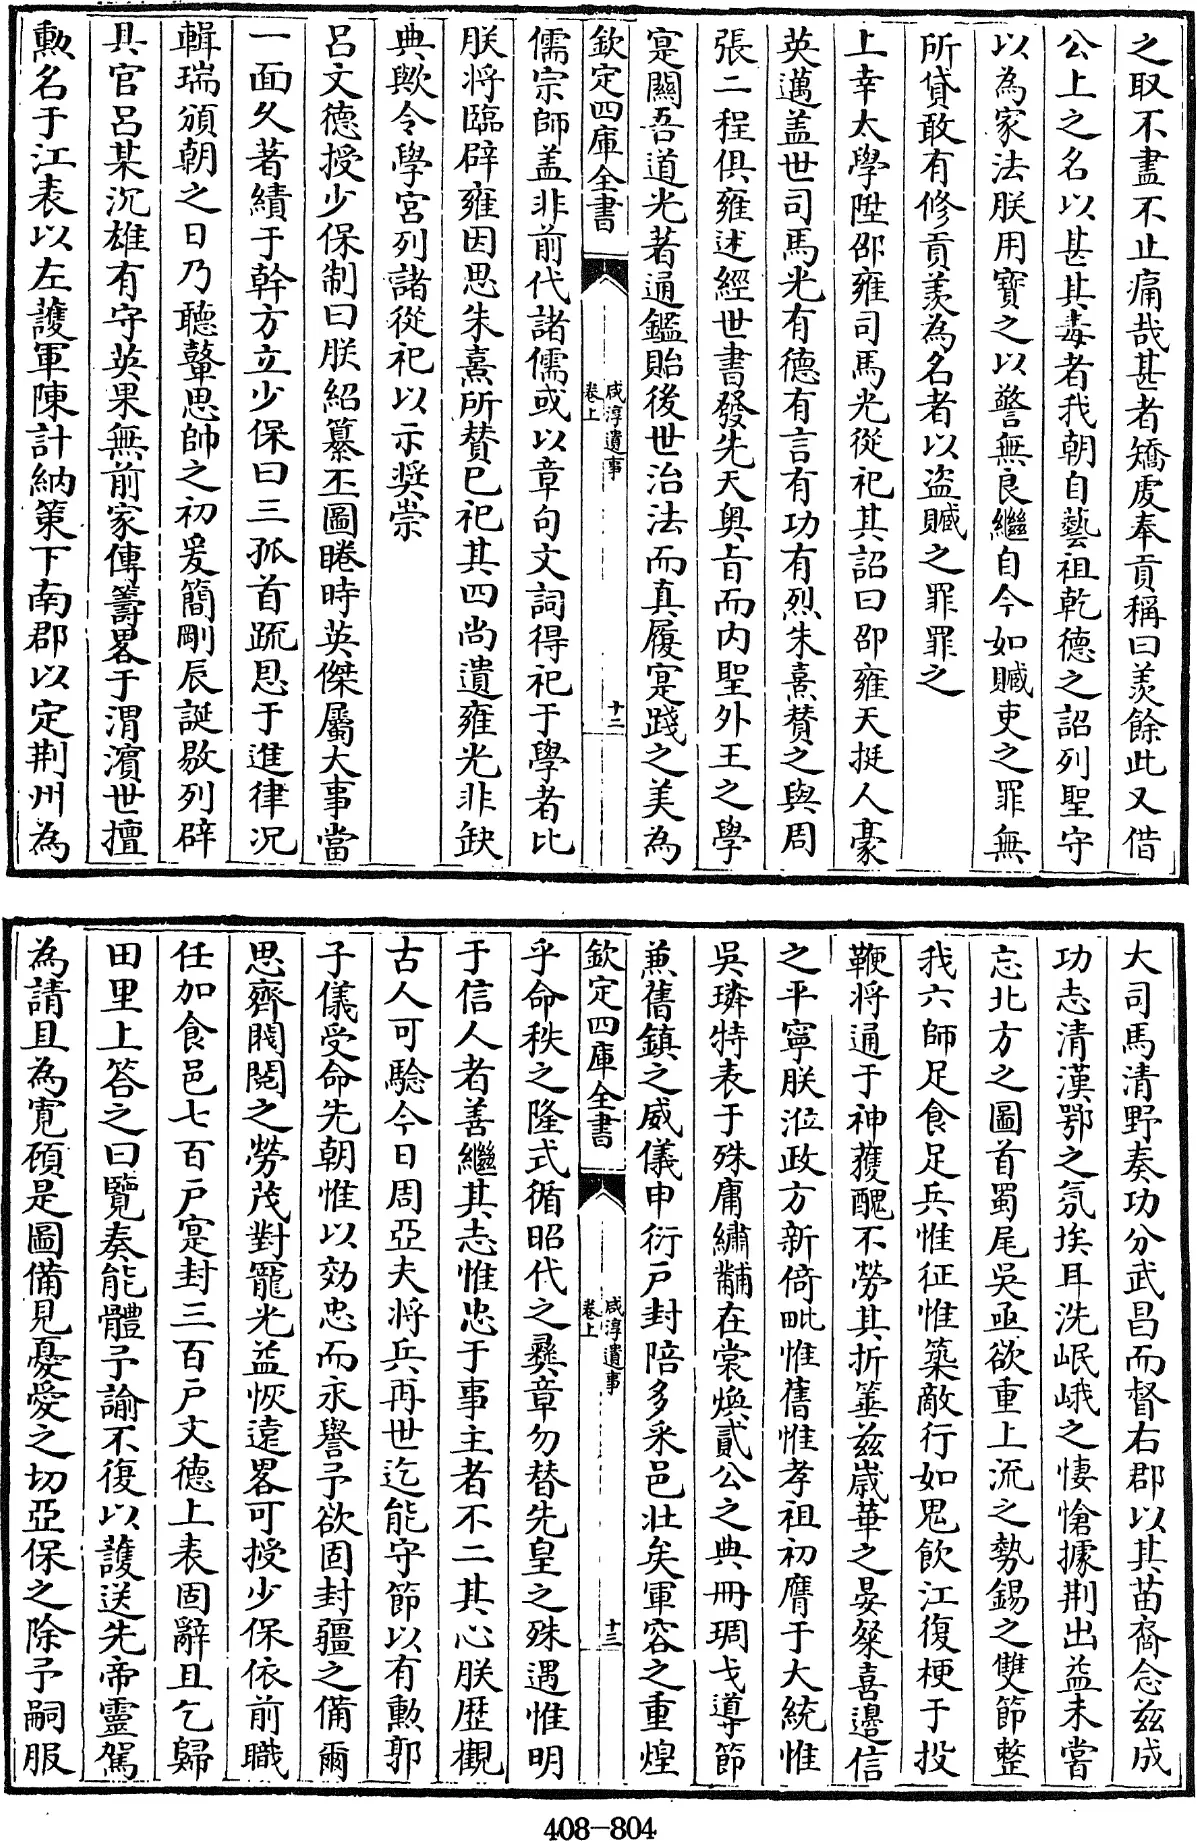 之取不盡不止痛哉甚者矯虔奉貢稱曰羨餘此又借
公上之名以甚其毒者我朝自藝祖乾德之詔列聖守
以為家法朕用寳之以警無良繼自今如贓吏之罪無
所貸敢有修貢羨為名者以盗贓之罪罪之
上幸太學陞邵雍司馬光從祀其詔曰邵雍天挺人豪
英邁盖世司馬光有德有言有功有烈朱熹賛之與周
張二程俱雍述經世書發先天奥㫖而内聖外王之學
寔闗吾道光著通鑑貽後世治法而真履寔踐之美為
欽定四庫全書
咸淳遺事
卷上
十二
儒宗師盖非前代諸儒或以章句文詞得祀于學者比
朕将臨辟雍因思朱熹所賛已祀其四尚遺雍光非缺
典歟令學宫列諸從祀以示奨崇
吕文德授少保制曰朕紹纂丕圖睠時英傑屬大事當
一面久著績于幹方立少保曰三孤首疏恩于進律况
輯瑞頒朝之日乃聽鼙思帥之初爰簡剛辰誕敭列辟
具官吕某沉雄有守英果無前家傳籌畧于渭濱世擅
勲名于江表以左護軍陳計納策下南郡以定荆州為
大司馬清野奏功分武昌而督右郡以其苗裔念兹成
功志清漢鄂之氛埃耳洗岷峨之悽愴據荆出益未甞
忘北方之圖首蜀尾吳亟欲重上流之勢錫之雙節整
我六師足食足兵惟征惟築敵行如鬼飲江復梗于投
鞭将通于神獲醜不勞其折箠兹嵗華之晏粲喜邊信
之平寧朕涖政方新倚毗惟舊惟孝祖初膺于大統惟
吳璘特表于殊庸繡黼在裳煥貳公之典冊琱戈導節
兼舊鎮之威儀申衍户封陪多采邑壯矣軍容之重煌
欽定四庫全書
咸淳遺事
卷上
十三
乎命秩之隆式循昭代之彛章勿替先皇之殊遇惟明
于信人者善繼其志惟忠于事主者不二其心朕歴觀
古人可驗今日周亞夫将兵再世迄能守節以有勲郭
子儀受命先朝惟以効忠而永譽予欲固封疆之備爾
思齊閥閲之勞茂對寵光益恢遠畧可授少保依前職
任加食邑七百户寔封三百户文德上表固辭且乞歸
田里上答之曰覽奏能體予諭不復以護送先帝靈駕
為請且為寛碩是圖備見憂愛之切亞保之除予嗣服
408-804